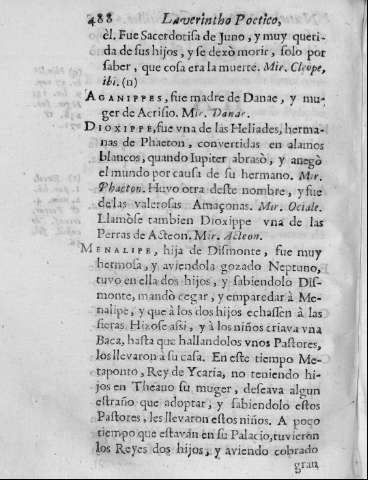 488 Laverintho Poetico,
èl. Fue Sacerdotisa de Juno, y muy queri-
da de sus hijos, y se dexò morir, solo por
saber, que cosa era la muerte. Mir. Cleope,
ibi. (n)
AGANIPPES, fue madre de Danae, y mu-
ger de Acrisio. Mir. Danae.
DIOXIPPE, fue vna de las Heliades, herma-
nas de Phaeton, convertidas en alamos
blancos, quando Iupiter abrasò, y anegò
el mundo por causa de su hermano. Mir.
Phaeton. Huvo otra deste nombre, y fue
de las valerosas Amaçonas. Mir. Ociale.
Llamòse tambien Dioxippe vna de las
Perras de Acteon. Mir. Acteon.
MENALIPE, hija de Dismonte, fue muy
hermosa, y aviendola gozado Neptuno,
tuvo en ella dos hijos, y sabiendolo Dis-
monte, mandò cegar, y emparedar à Me-
nalipe, y que à los dos hijos echassen à las
fieras. Hizose assi, y à los niños criava vna
Baca, hasta que hallandolos vnos Pastores,
los llevaron à su casa. En este tiempo Me-
taponto, Rey de Ycaria, no teniendo hi-
jos en Theano su muger, deseava algun
estraño que adoptar, y sabiendolo estos
Pastores, les llevaron estos niños. A poco
tiempo que estavàn en su Palacio, tuvieron
los Reyes dos hijos, y aviendo cobrado
gran